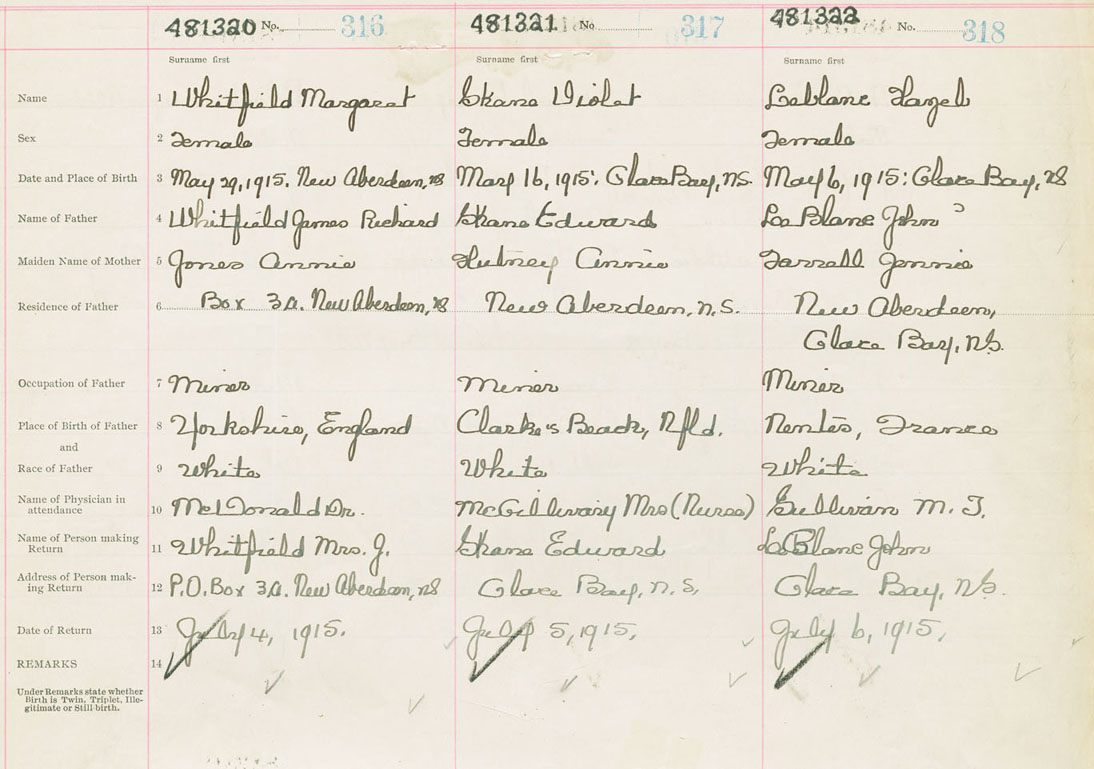 481320 No. 316 481321 No 317 481322 No. 318
Surname first Surname first Surname first
Name 1 Whitfield Margaret Skane Violet Leblanc Hazel
Sex 2 Female Female Female
Date and Place of Birth 3 May 29, 1915. New Aberdeen, NS May 16, 1915. Glace Bay, N.S. May 6, 1915: Glace Bay, NS
Name of Father 4 Whitfield James Richard Skane Edward Le Blanc John
Maiden Name of Mother 5 Jones Annie Annie Farrell Jennie
Residence of Father 6 Box 3a. New Aberdeen, NS New Aberdeen, N.S. New Aberdeen,
Glace Bay, NS.
Occupation of Father 7 Miner Miner Miner
Place of Birth of Father 8 Yorkshire, England Clarke's Beach, Nfld. Nentes, France
and
Race of Father 9 White White White
Name of Physician in
attendance 10 McDonald Dr. McGillivary Mrs (Nurse) Sullivan M. T.
Name of Person making
Return 11 Whitfield Mrs. J. Skane Edward Le Blanc John
Address of Person mak-
ing Return 12 P.O. Box 3a. New Aberdeen, NS Glace Bay, N.S, Glace Bay, NS.
Date of Return 13 July 4, 1915. July 5, 1915. July 6, 1915.
REMARKS 14
Under Remarks state whether
Birth is Twin, Triplet, Ille-
gitimate or Still birth.